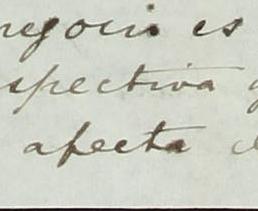 negocio es
spectiva
afecta